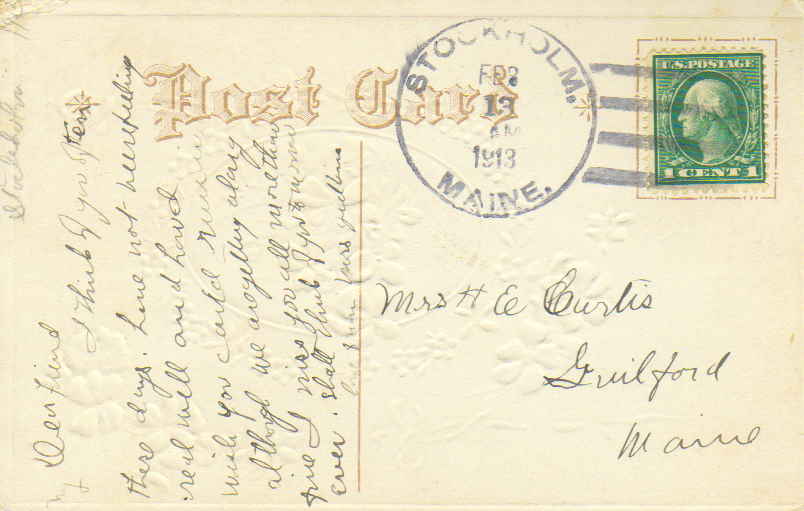 Post Card
STOCKHOLM.
FEB
13
AM
1913
MAINE.
U.S. POSTAGE
1 CENT 1
Mrs H E Curtis
Guilford
Maine
Stockholm
My Dear friend
I think of you often
these days. have not been feeling
real well and have
wish you could run in
although we are getting along
fine I miss you all more than
ever. shall think of you
love from